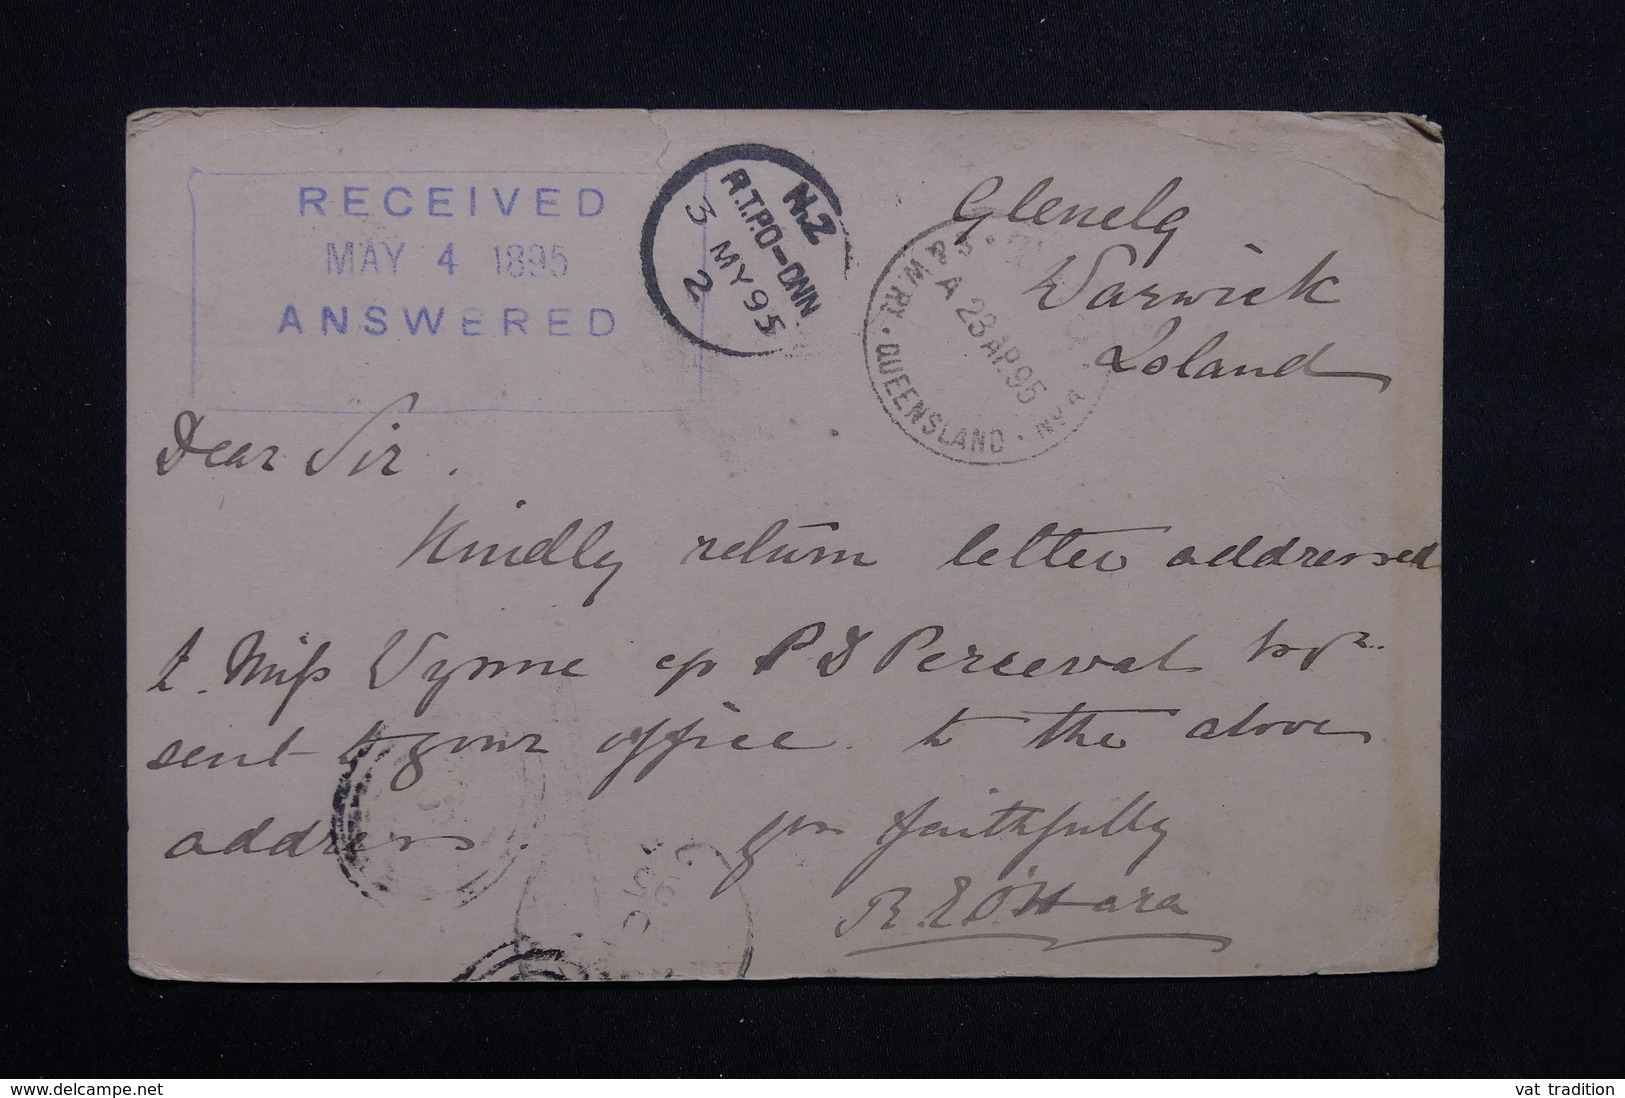 RECEIVED
MAY 4 1895
ANSWERED
N.Z
R.T.P.O-DNN
3 MY 95
2
S. & W. RY. QUEENSLAND. No 4
A
23 AP. 95
Glenelg
Warwick
Qsland
Dear Sir.
Kindly return letter addressed
Miss Wynne P Perceval
sent to your office to the above
address. yrs faithfully
R. E O'Hara
www.delcampe.net
vat tradition